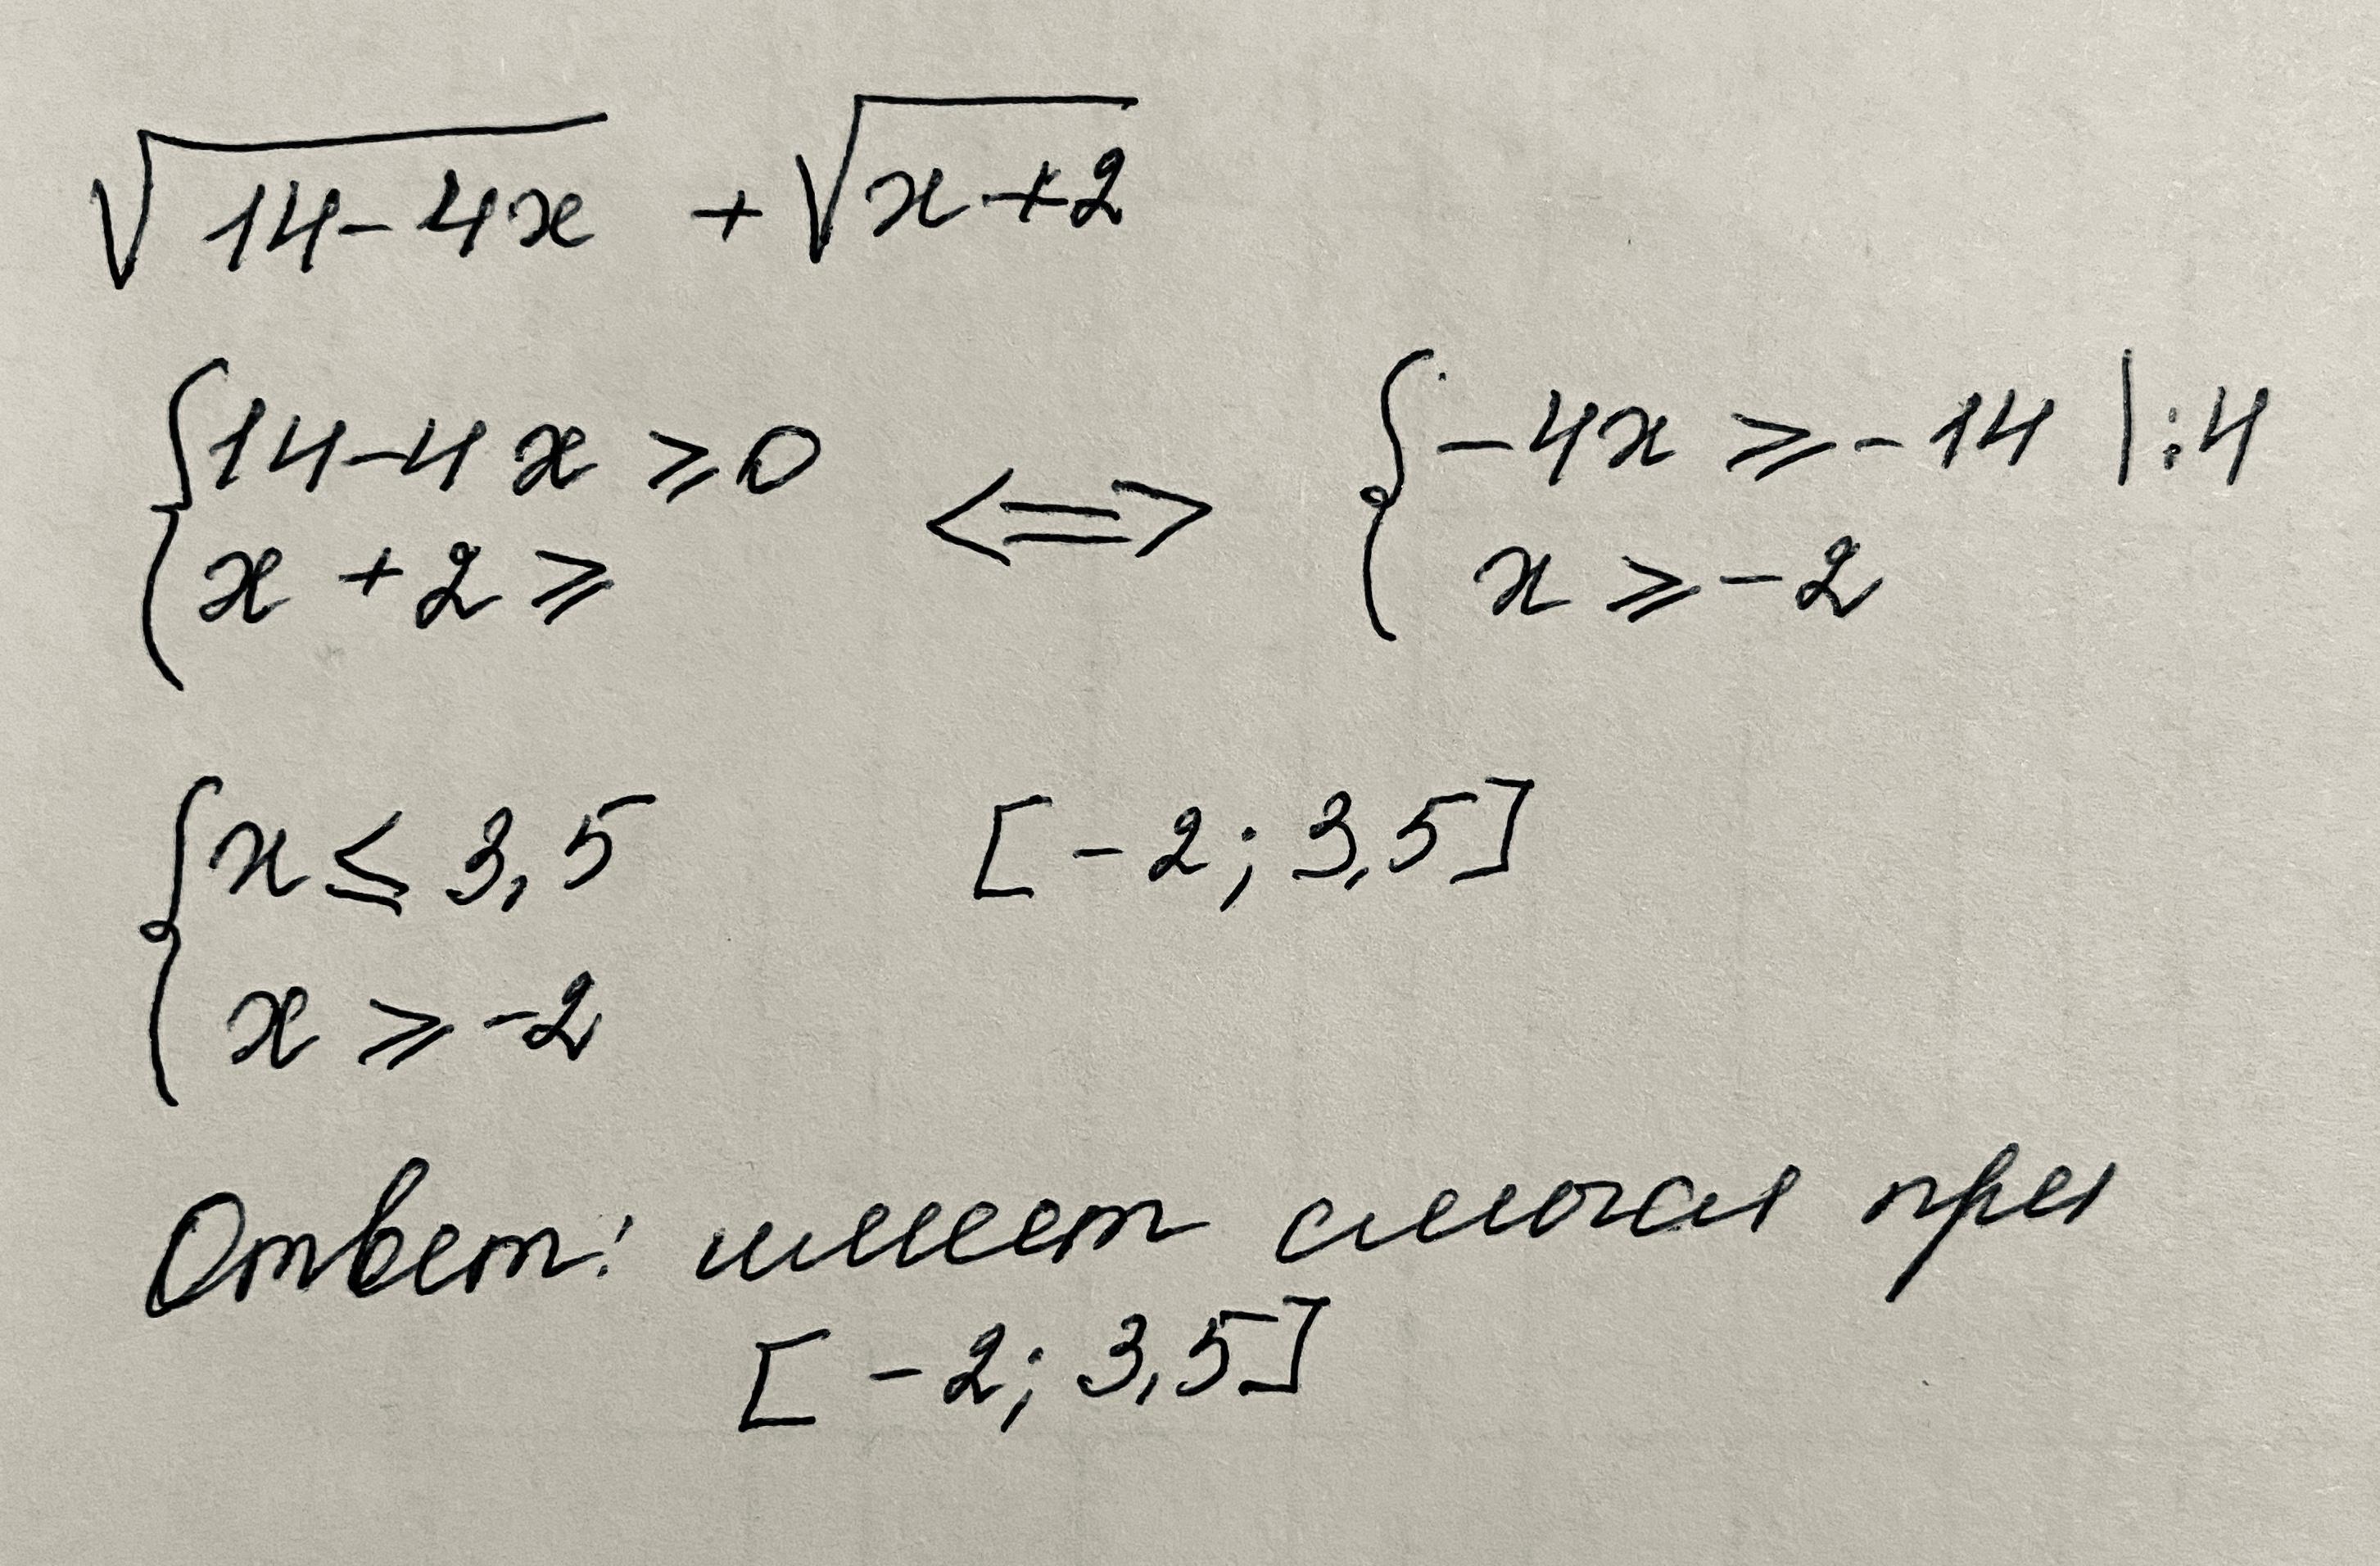 √(14-4x) + √(x+2)
{14-4x ⩾ 0 <=> {-4x ⩾ -14 |:4
{x+2 ⩾ {x ⩾ -2
{x ≤ 3,5 [-2; 3,5]
{x ⩾ -2
Ответ: имеет смысл при
[-2; 3,5]